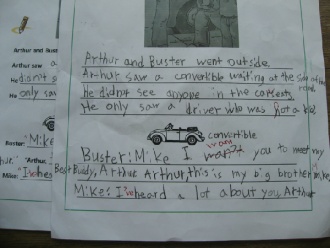 Arthur and Buster
Arthur saw
He didn't s
He only saw
Buster: "Mike
"Arthur.
Mike: "I've
Arthur and Buster went outside.
Arthur saw a convertible waiting at the side of the
road.
He didn't see anyone in the carseats
He only saw a driver who was not a kid
convertible
want
Buster: Mike I you to meet my
Best Buddy, Arthur Arthur, this is my big brother mike
Mike: I've heard a lot about you Arthur